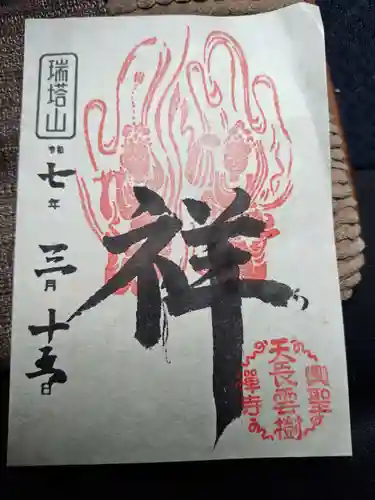 瑞塔山
令和
七年
三月
十五日
祥
天長雲樹
興聖
禅寺